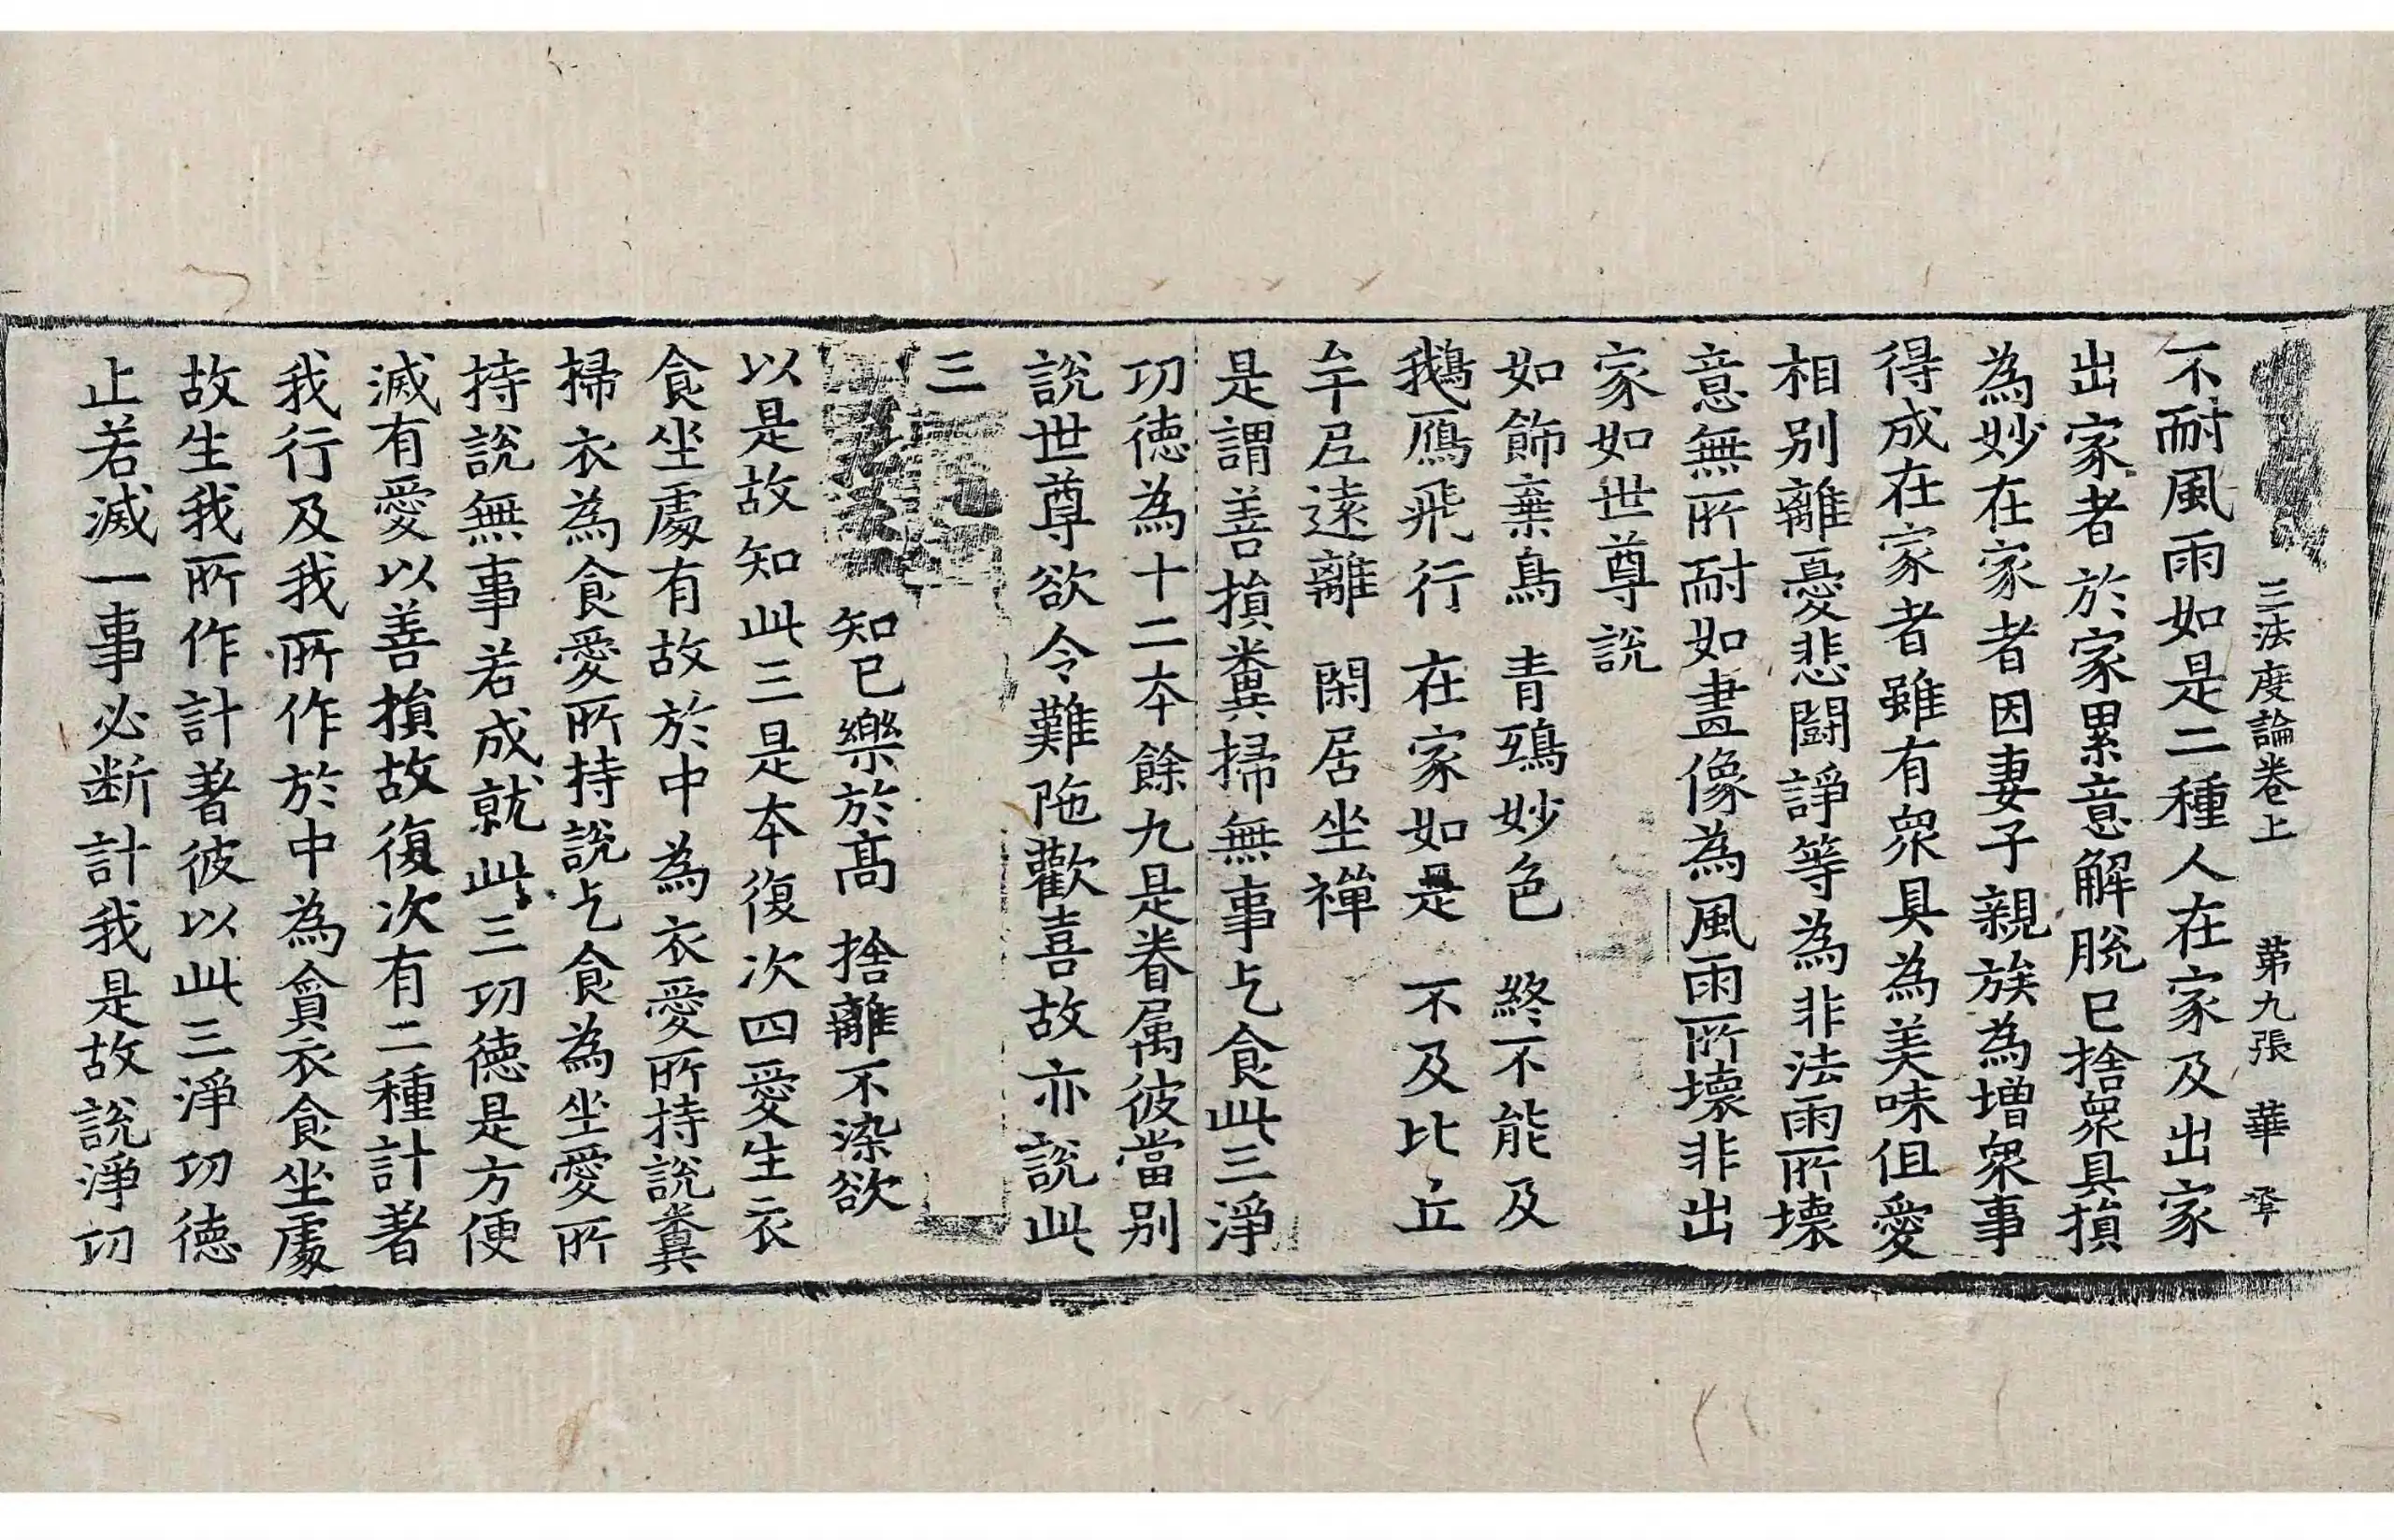 三法度論卷上　第九張　華
不耐風雨如是二種人在家及出家
出家者於家累意解脫已捨衆具損
為妙在家者因妻子親族為增衆事
得成在家者雖有衆具為美味但愛
相别離憂悲鬪諍等為非法雨所壞
意無所耐如畫像為風雨所壞非出
家如世尊說
如飾棄鳥　青鵄妙色　終不能及
鵝鴈飛行　在家如是　不及比丘
牟尼遠離　閑居坐禪
是謂善損糞掃無事乞食此三淨
功德為十二本餘九是眷属彼當别
說世尊欲令難陁歡喜故亦說此
三
知已樂於高　捨離不染欲
以是故知此三是本復次四愛生衣
食坐處有故於中為衣愛所持說糞
掃衣為食愛所持說乞食為坐愛所
持說無事若成就此三功德是方便
滅有愛以善損故復次有二種計著
我行及我所作於中為貪衣食坐處
故生我所作計著彼以此三淨功德
止若滅一事必断計我是故說淨功